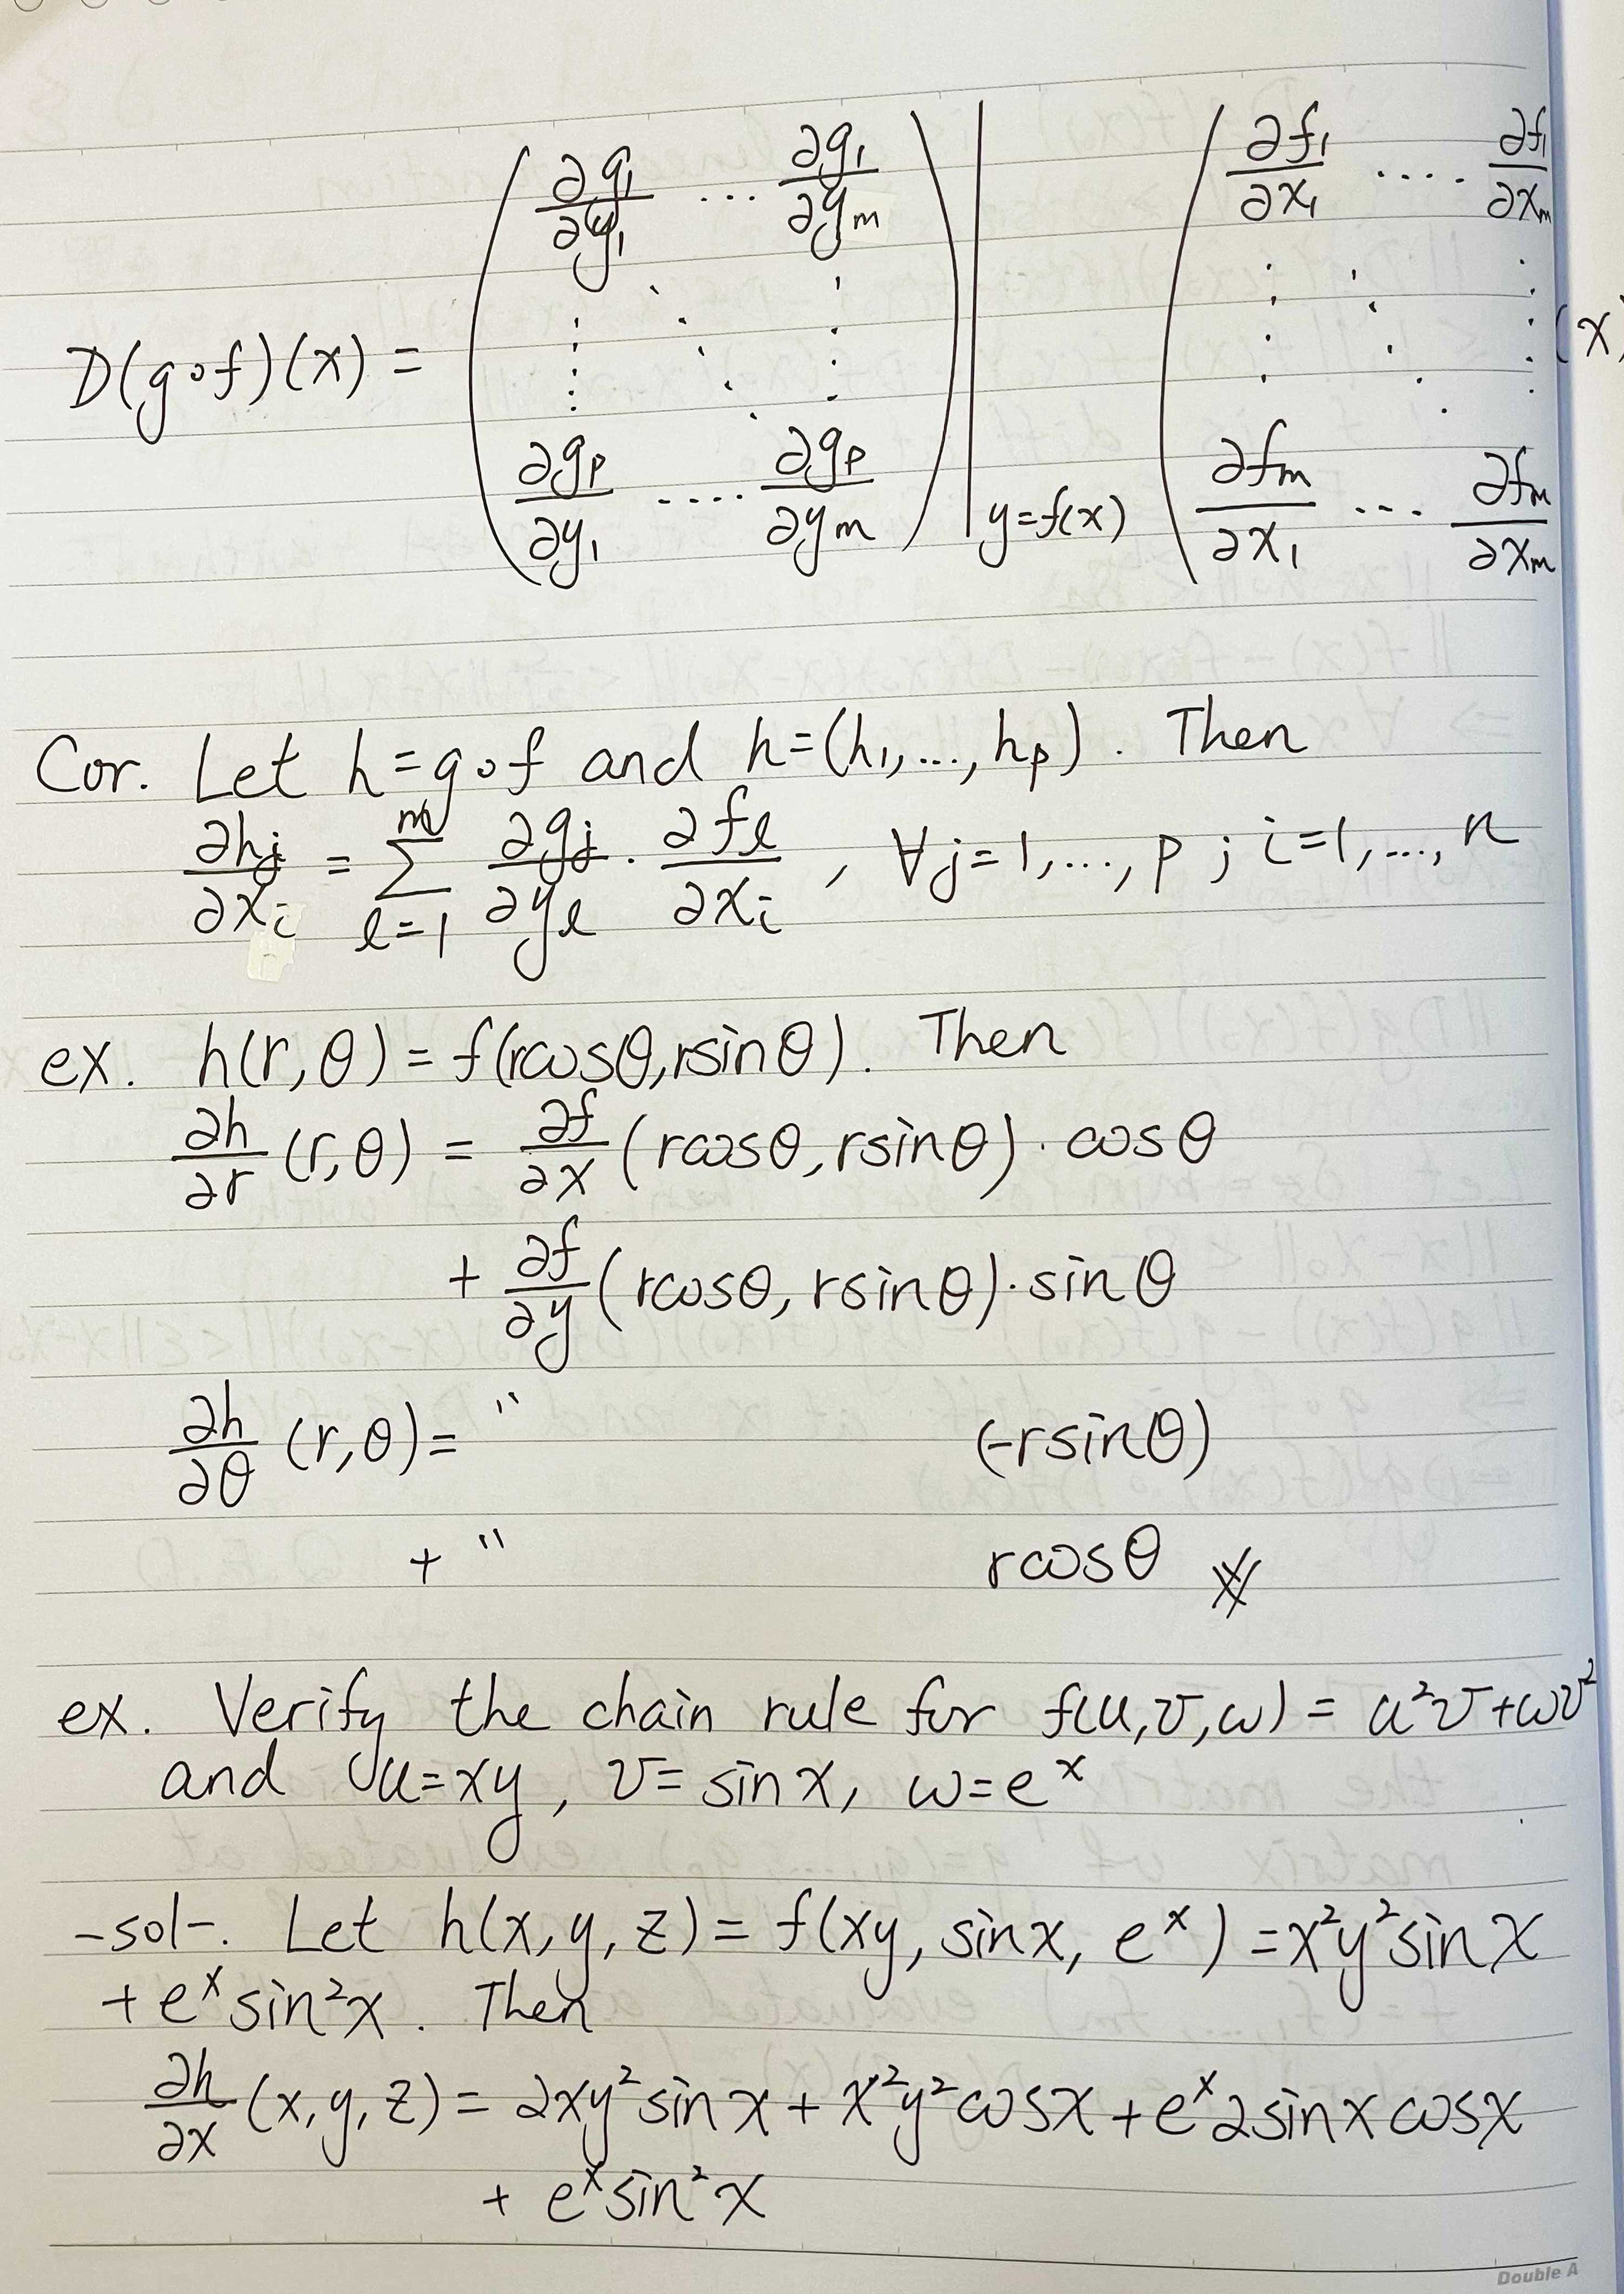 D(g∘f)(x) = ( ∂g₁/∂y₁ ... ∂g₁/∂yₘ ⋮ ⋱ ⋮ ∂gₚ/∂y₁ .... ∂gₚ/∂yₘ ) | y=f(x) ( ∂f₁/∂x₁ .... ∂f₁/∂xₘ ⋮ ⋱ ⋮ ∂fₘ/∂x₁ ... ∂fₘ/∂xₘ (x)
Cor. Let h=g∘f and h=(h₁,...,hₚ). Then
∂hⱼ/∂xᵢ = Σ_{ℓ=1}^{m} ∂gⱼ/∂y_ℓ · ∂f_ℓ/∂xᵢ , ∀j=1,..., p ; i=1,..., n
ex. h(r,θ) = f(rcosθ,rsinθ). Then
∂h/∂r (r,θ) = ∂f/∂x (rcosθ,rsinθ)·cosθ
+ ∂f/∂y (rcosθ, rsinθ)·sinθ
∂h/∂θ (r,θ)= " (-rsinθ)
+ " rcosθ
ex. Verify the chain rule for f(u,v,w) = u²v+wv²
and u=xy, v=sinx, w=eˣ
-sol-. Let h(x,y,z)= f(xy, sinx, eˣ) =x²y²sinx
+eˣsin²x. Then
∂h/∂x (x,y,z)= 2xy²sinx + x²y²cosx +eˣ2sinxcosx
+ eˣsin²x
Double A